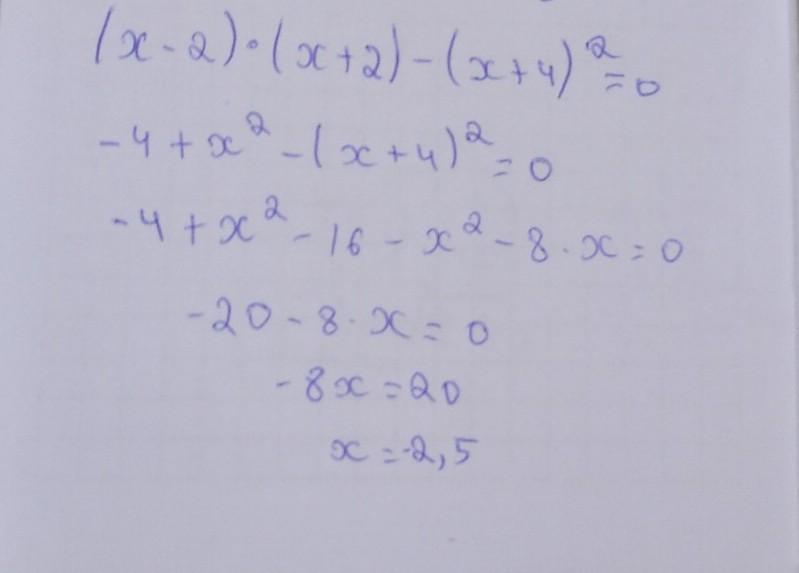 (x-2)·(x+2)-(x+4)²=0
-4+x²-(x+4)²=0
-4+x²-16-x²-8·x=0
-20-8·x=0
-8x=20
x=-2,5